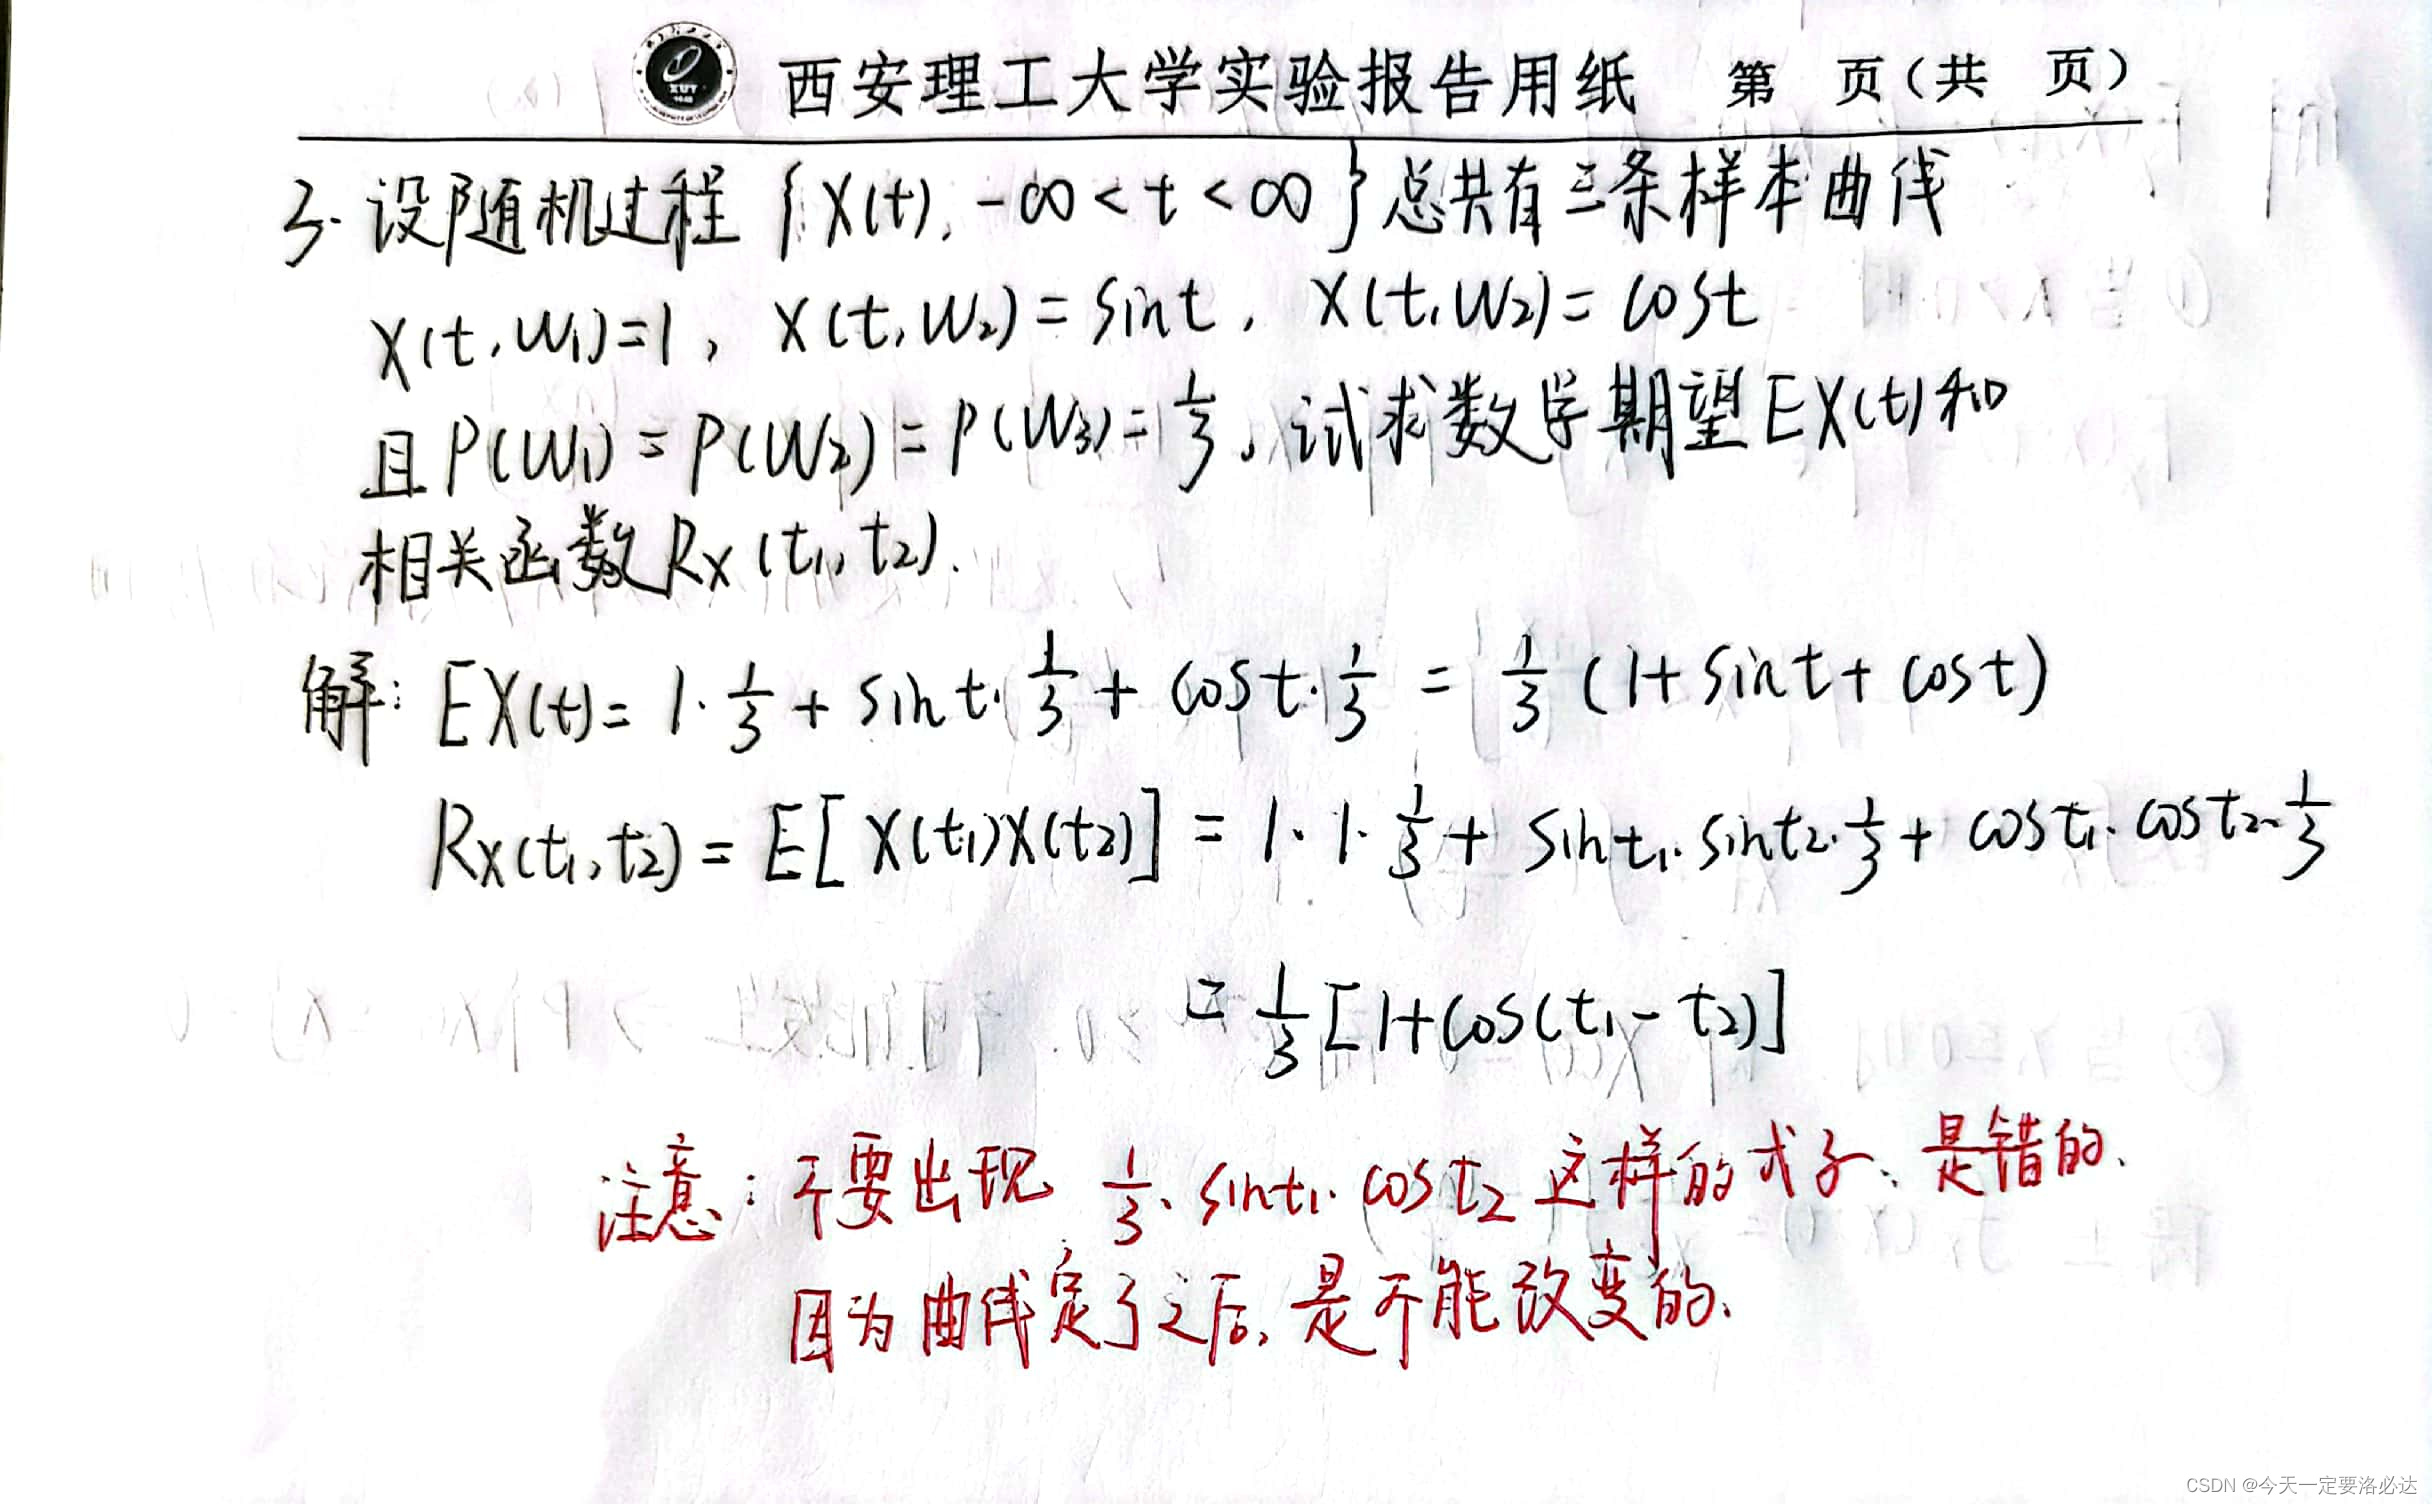 西安理工大学实验报告用纸 第 页(共 页)
3. 设随机过程 {X(t), -∞ < t < ∞} 总共有三条样本曲线
X(t, W₁)=1, X(t, W₂)= sint, X(t, W₂)= cost
且 P(W₁) = P(W₂) = P(W₃) = 1/3, 试求数学期望 EX(t) 和
相关函数 Rx(t₁, t₂).
解: EX(t) = 1·1/3 + sint·1/3 + cost·1/3 = 1/3 (1+ sint + cost)
Rx(t₁, t₂) = E[X(t₁)X(t₂)] = 1·1·1/3 + sint₁·sint₂·1/3 + cost₁·cost₂·1/3
= 1/3 [1+cos(t₁- t₂)]
注意: 不要出现 1/3·sint₁·cost₂ 这样的式子、是错的、
因为曲线定了之后, 是不能改变的、
CSDN @今天一定要洛必达